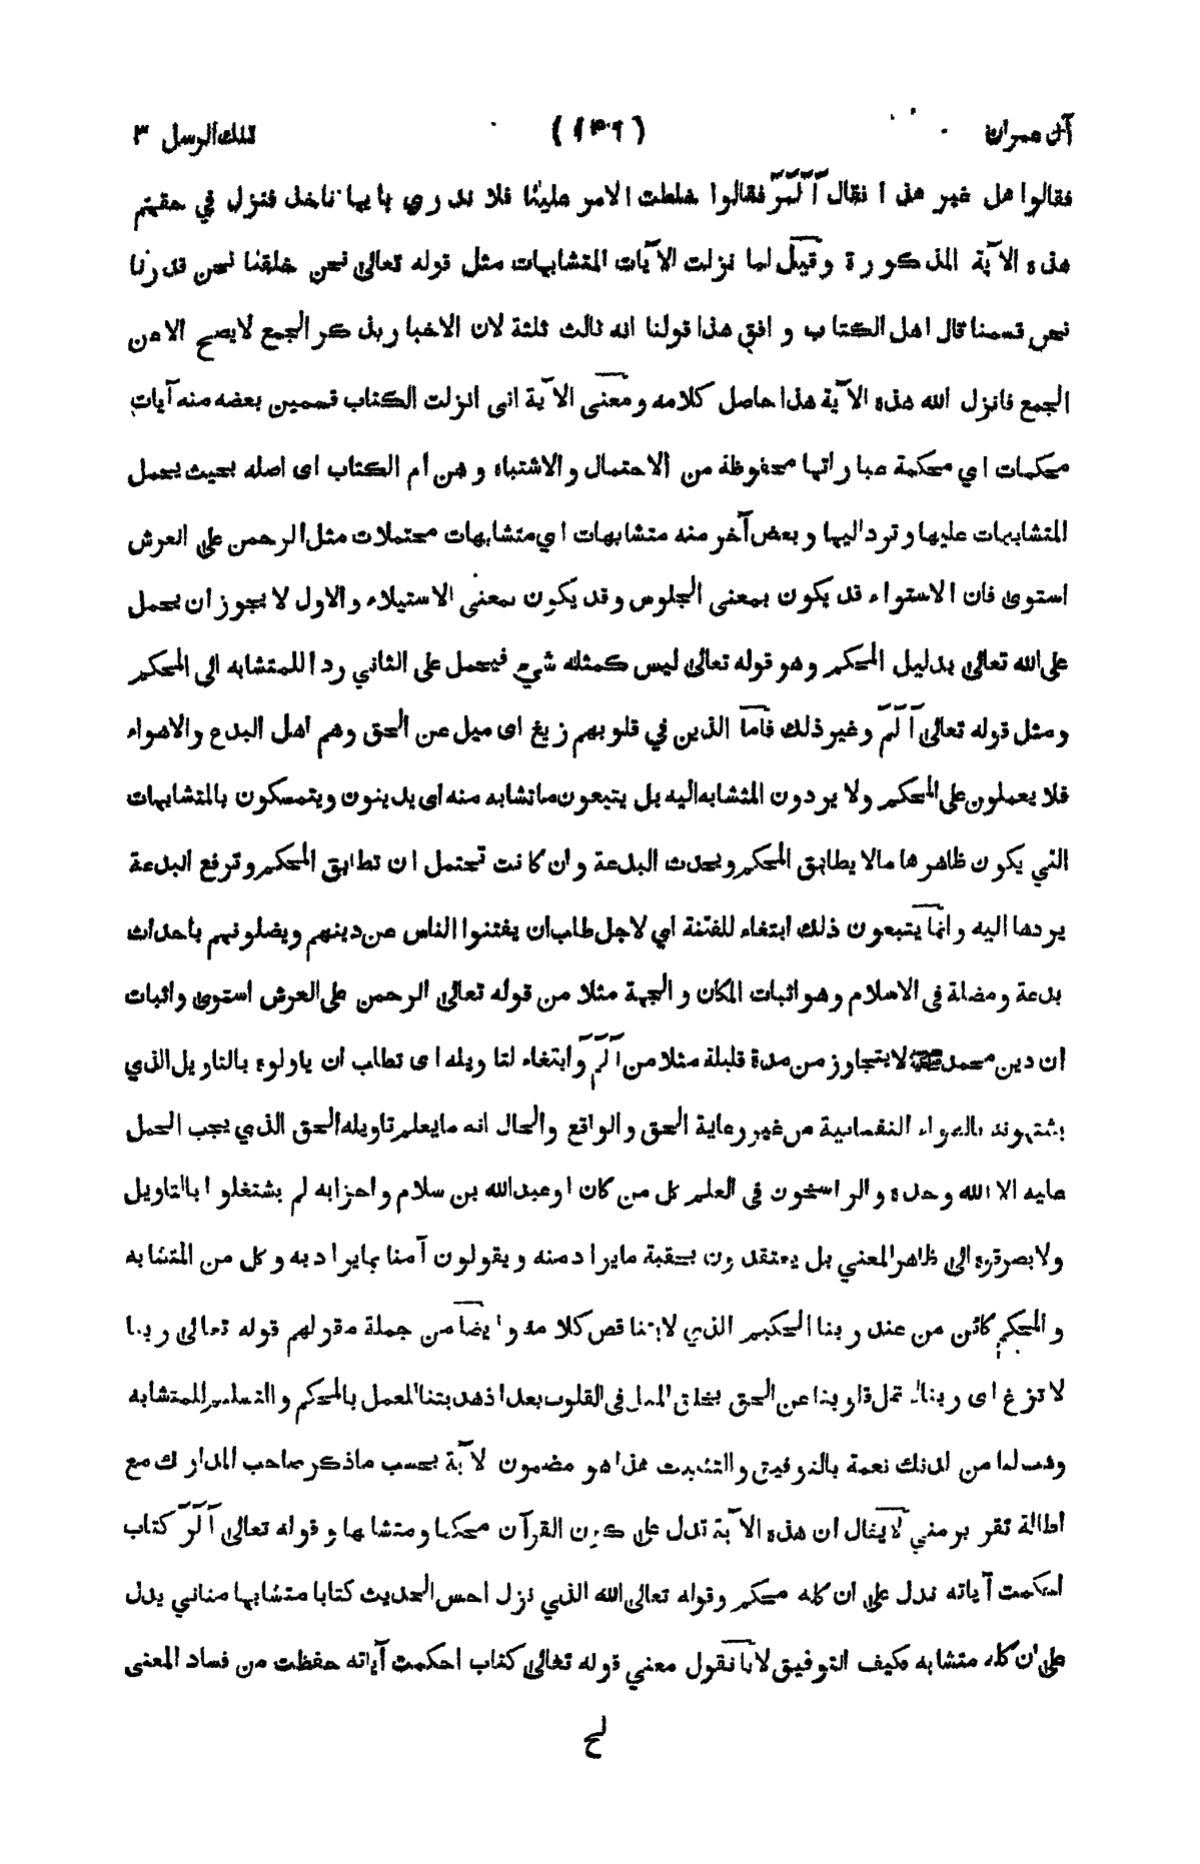 آل عمران (١٣٠٦) تلك الرسل ٣
فقالوا هل غير هذا فقال آلمر فقالوا خلطت الامر علينا فلا ندري بايها ناخذ فنزل في حقهم
هذه الآية المذكورة وقيل لما نزلت الآيات المتشابهات مثل قوله تعالى نحن خلقنا نحن قدرنا
نحن قسمنا قال اهل الكتاب وافق هذا قولنا انه ثالث ثلثة لان الاخبار بذكر الجمع لا يصح الا من
الجمع فانزل الله هذه الآية هذا حاصل كلامه ومعنى الآية انى انزلت الكتاب قسمين بعضه منه آيات
محكمات اي محكمة عباراتها محفوظة من الاحتمال والاشتباه وهن أم الكتاب اى اصله بحيث يحمل
المتشابهات عليها وترد اليها وبعض آخر منه متشابهات اي متشابهات محتملات مثل الرحمن على العرش
استوى فان الاستواء قد يكون بمعنى الجلوس وقد يكون بمعنى الاستيلاء والاول لا يجوز ان يحمل
على الله تعالى بدليل المحكم وهو قوله تعالى ليس كمثله شيء فيحمل على الثاني ردا للمتشابه الى المحكم
ومثل قوله تعالى آلم وغير ذلك فاما الذين في قلوبهم زيغ اى ميل عن الحق وهم اهل البدع والاهواء
فلا يعملون على المحكم ولا يردون المتشابه اليه بل يتبعون ما تشابه منه اى يدينون ويتمسكون بالمتشابهات
التي يكون ظاهرها مالا يطابق المحكم ويحدث البدعة وان كانت تحتمل ان تطابق المحكم وترفع البدعة
يردها اليه وانما يتبعون ذلك ابتغاء للفتنة اي لاجل طلب ان يفتنوا الناس عن دينهم ويضلونهم باحداث
بدعة ومضلة فى الاسلام وهو اثبات المكان والجهة مثلا من قوله تعالى الرحمن على العرش استوى واثبات
ان دين محمد ﷺ لا يتجاوز من مدة قليلة مثلا من آلم وابتغاء لتاويله اى تطلب ان ياولوه بالتاويل الذي
يشتهونه بالهواء النفسانية من غير رعاية الحق والواقع والحال انه ما يعلم تاويله الحق الذي يجب الحمل
عليه الا الله وحده والراسخون فى العلم كل من كان او عبدالله بن سلام واحزابه لم يشتغلوا بالتاويل
ولا بصرفه الى ظاهر المعني بل يعتقدون بحقية ما يراد منه ويقولون آمنا بما يراد به وكل من المتشابه
والمحكم كائن من عند ربنا الحكيم الذي لا يتناقض كلامه وايضا من جملة مقولهم قوله تعالى ربنا
لا تزغ اى ربنا لا تمل قلوبنا عن الحق بخلق الميل فى القلوب بعد اذ هديتنا لعمل بالمحكم والتسليم للمتشابه
وهب لنا من لدنك نعمة بالتوفيق والتثبيت هذا هو مضمون لآية بحسب ما ذكر صاحب المدارك مع
اطالة تقرير مني لا يقال ان هذه الآية تدل على كون القرآن محكما ومتشابها وقوله تعالى آلر كتاب
احكمت آياته تدل على ان كله محكم وقوله تعالى الله الذي نزل احسن الحديث كتابا متشابها مثاني يدل
على ان كله متشابه فكيف التوفيق لانا نقول معني قوله تعالى كتاب احكمت آياته حفظت من فساد المعنى
لح